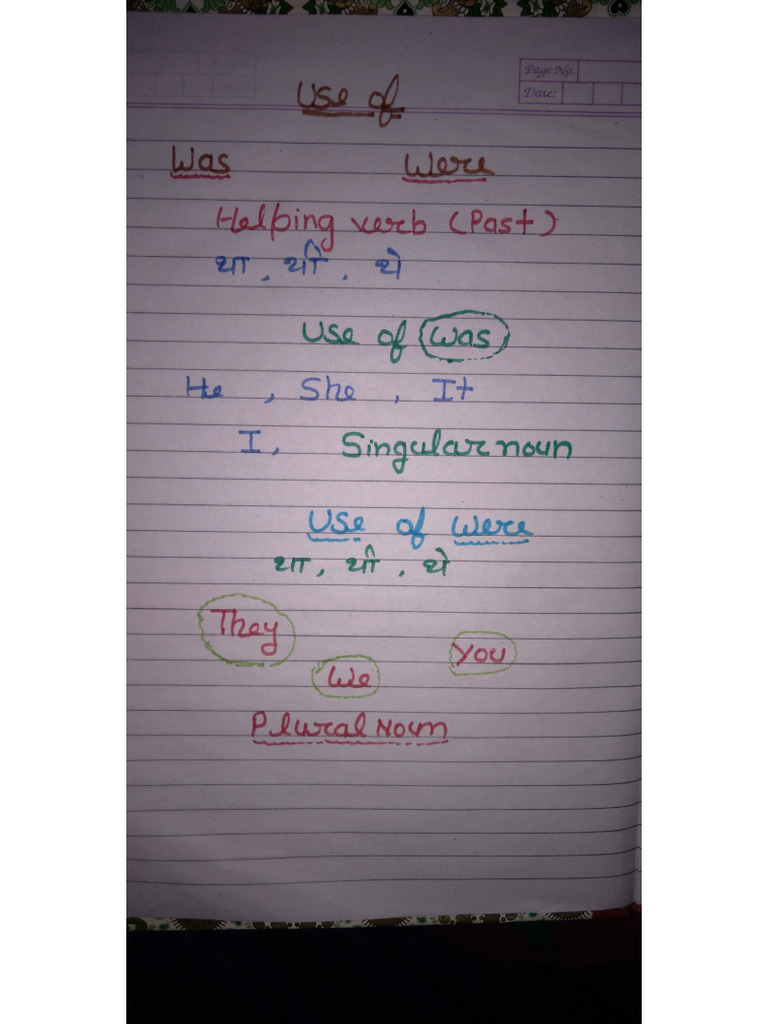 Page No.
Date:
Use of
Was Were
Helping verb (Past)
था, थी, थे
Use of Was
He, She, It
I, Singular noun
Use of Were
था, थी, थे
They
You
We
Plural Noun